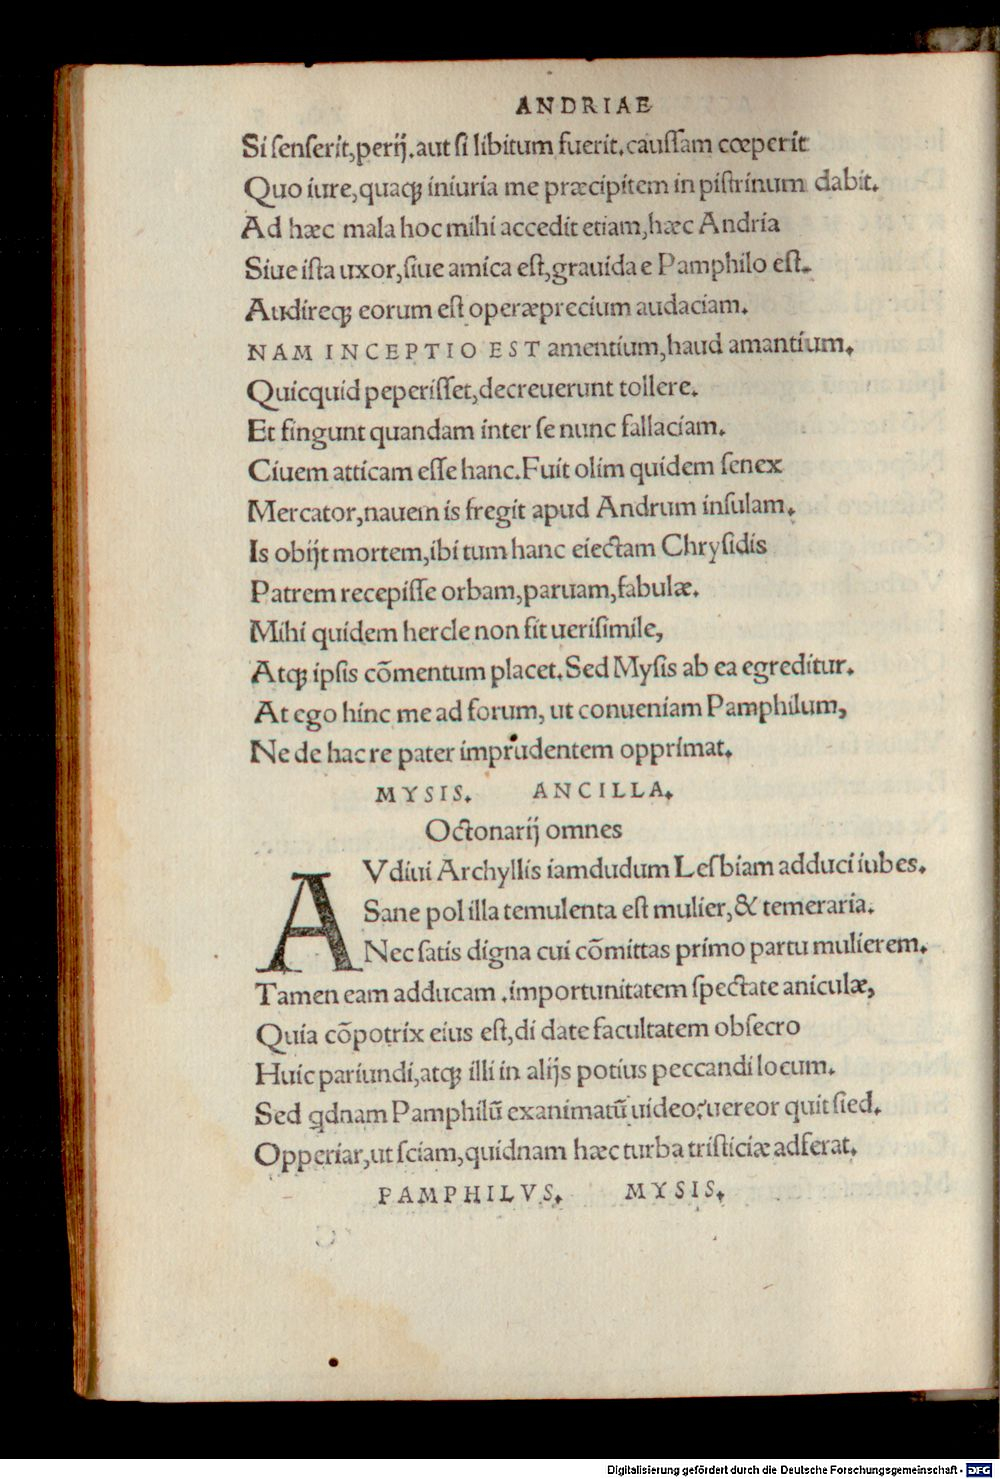 ANDRIAE
Si senserit,perij.aut si libitum fuerit.caussam cœperit
Quo iure,quaqꝫ iniuria me præcipitem in pistrinum dabit.
Ad hæc mala hoc mihi accedit etiam,hæc Andria
Siue ista uxor,siue amica est,grauida e Pamphilo est.
Audireqꝫ eorum est operæprecium audaciam.
NAM INCEPTIO EST amentium,haud amantium.
Quicquid peperisset,decreuerunt tollere.
Et fingunt quandam inter se nunc fallaciam.
Ciuem atticam esse hanc.Fuit olim quidem senex
Mercator,nauem is fregit apud Andrum insulam.
Is obijt mortem,ibi tum hanc eiectam Chrysidis
Patrem recepisse orbam,paruam,fabulæ.
Mihi quidem hercle non fit uerisimile,
Atqꝫ ipsis cõmentum placet.Sed Mysis ab ea egreditur.
At ego hinc me ad forum, ut conueniam Pamphilum,
Ne de hac re pater imprudentem opprimat.
MYSIS. ANCILLA.
Octonarij omnes
AVdiui Archyllis iamdudum Lesbiam adduci iubes.
Sane pol illa temulenta est mulier,& temeraria.
Nec satis digna cui cõmittas primo partu mulierem.
Tamen eam adducam .importunitatem spectate aniculæ,
Quia cõpotrix eius est,di date facultatem obsecro
Huic pariundi,atqꝫ illi in alijs potius peccandi locum.
Sed ꝗdnam Pamphilũ exanimatũ uideo?uereor quit sied.
Opperiar,ut sciam,quidnam hæc turba tristiciæ adferat.
PAMPHILVS. MYSIS.
Digitalisierung gefördert durch die Deutsche Forschungsgemeinschaft - DFG